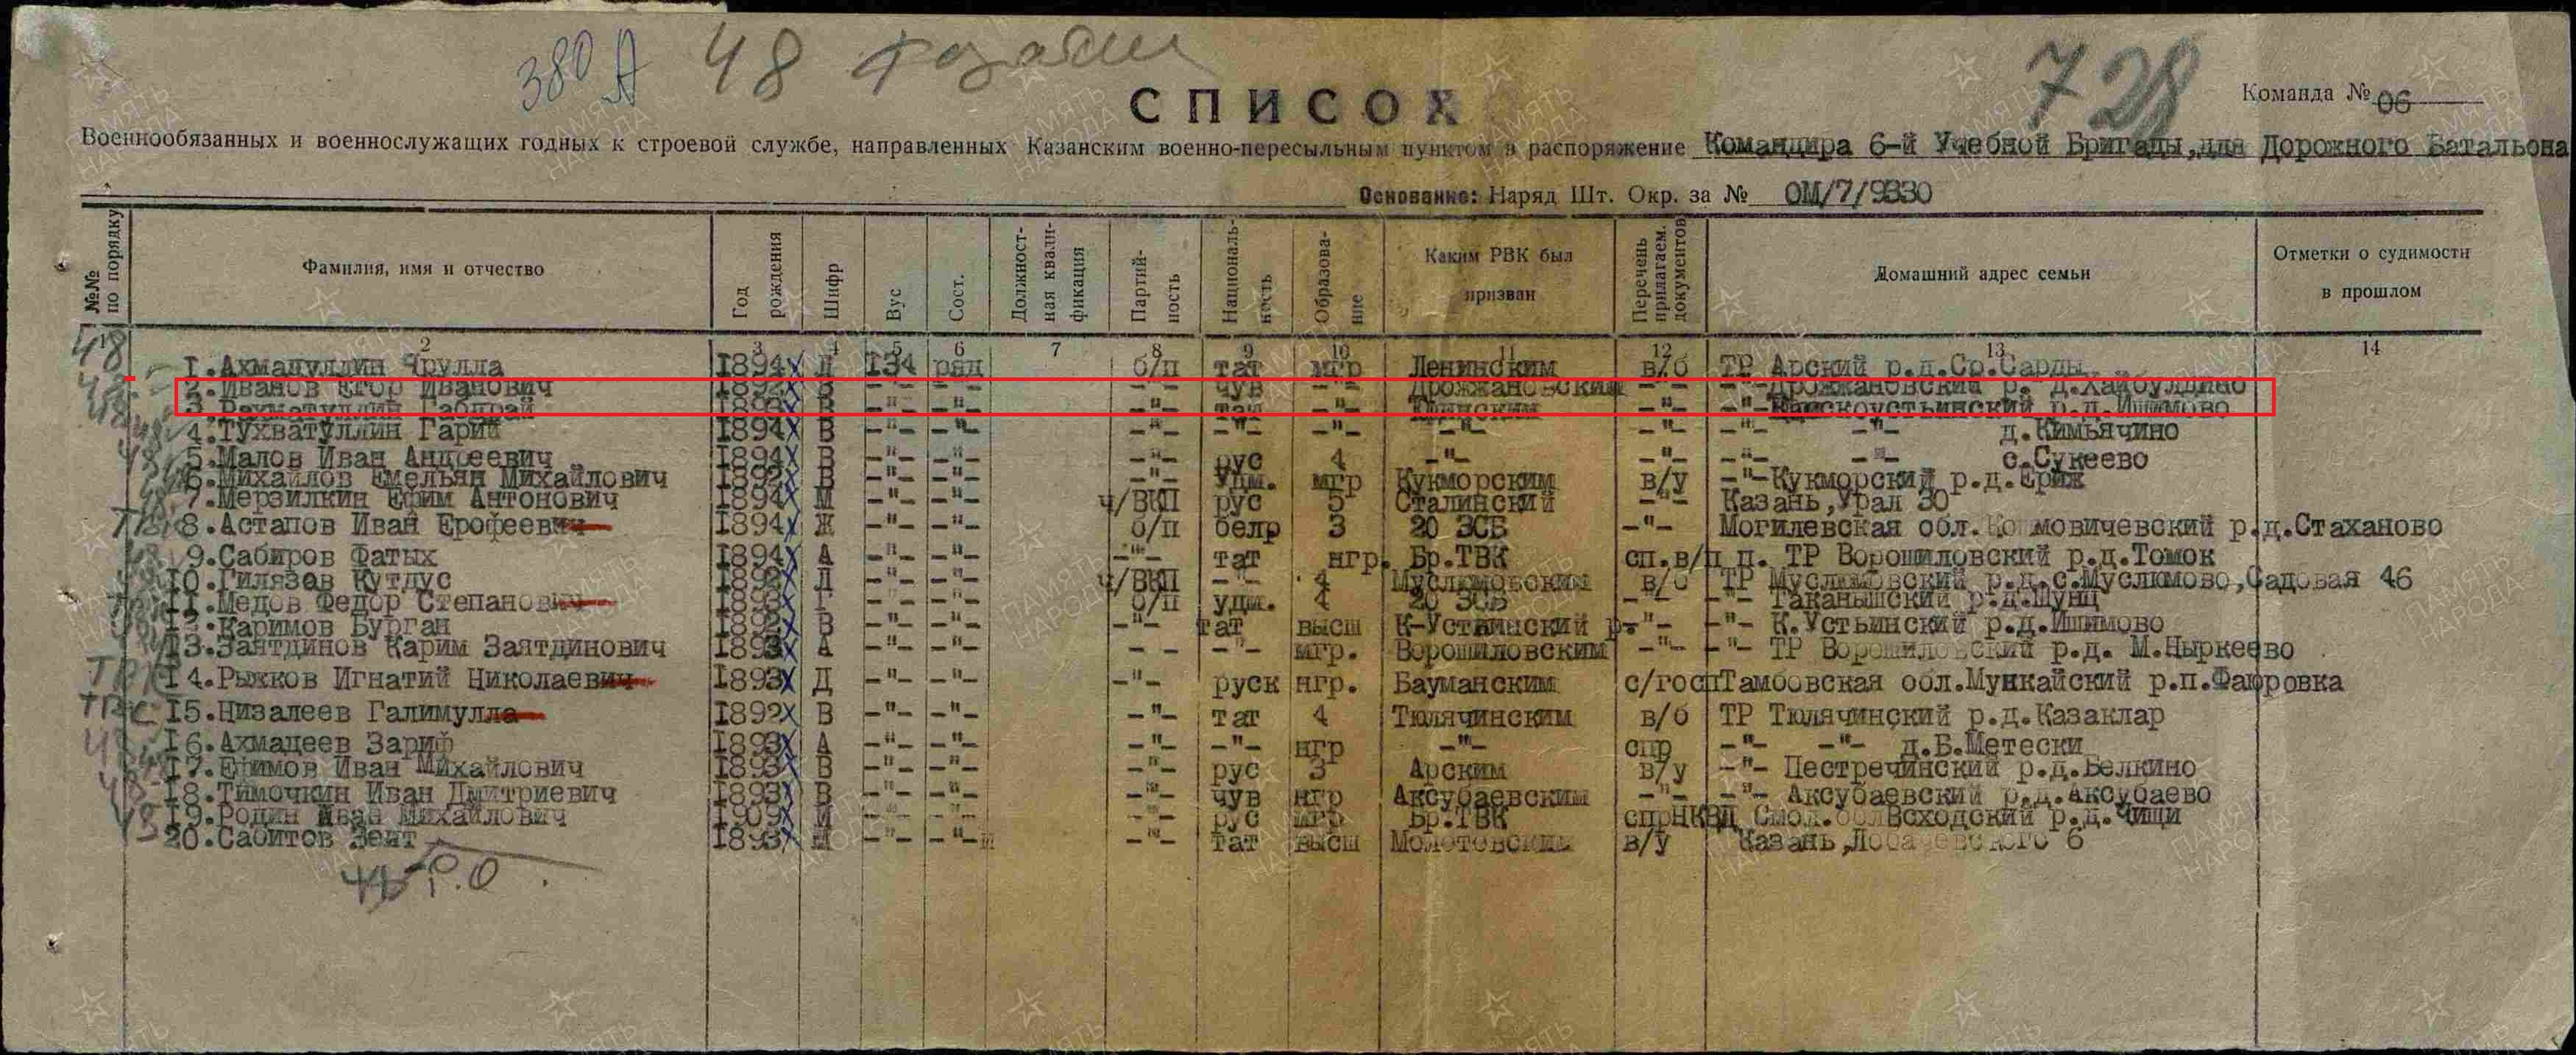 380 А 48
728
СПИСОК
Команда № 06
Военнообязанных и военнослужащих годных к строевой службе, направленных Казанским военно-пересыльным пунктом в распоряжение Командира 6-й Учебной Бригады,для Дорожного Батальона
Основание: Наряд Шт. Окр. за № ОМ/7/9330
№№ по порядку Фамилия, имя и отчество Год рождения Шифр Вус Сост. Должност-ная квали-фикация Партий-ность Националь-ность Образова-ние Каким РВК был призван Перечень прилагаем. документов Домашний адрес семьи Отметки о судимости в прошлом
1 2 3 4 5 6 7 8 9 10 11 12 13 14
I.Ахмадуллин I894 Д I34 ряд б/п тат мгр Ленинским в/б ТР Арский р.д.Ср.Сарды
2.Иванов Егор Иванович I892 В -"- -"- -"- чув -"- Дрожжановским -"- -"- Дрожжановский р. д.Хайбулдино
3.Рахматуллин I893 В -"- -"- -"- тат -"- -"- -"- Камскоустьинский р.д.Ишимово
4.Тухватуллин Гарий I894 В -"- -"- -"- -"- -"- -"- -"- -"- -"- д.Кимьячино
5.Малов Иван Андреевич I894 В -"- -"- -"- рус 4 -"- -"- -"- -"- с.Сукеево
6.Михайлов Емельян Михайлович I892 В -"- -"- -"- Удм. мгр Кукморским в/у -"-Кукморский р.д.Ерик
7.Мерзилкин Ефим Антонович I894 М -"- -"- ч/ВКП рус 5 Сталинский -"- Казань,Урал 30
8.Астапов Иван Ерофеевич I894 Ж -"- -"- б/п белр 3 20 ЗСБ -"- Могилевская обл. р.д.Стаханово
9.Сабиров Фатых I894 А -"- -"- -"- тат нгр. Бр.ТВК сп.в/п п. ТР Ворошиловский р.д.Томок
I0.Гилязов Кутдус I892 Д -"- -"- ч/ВКП -"- 4 Муслюмовским в/б ТР Муслюмовский р.д.с.Муслюмово,Садовая 46
II.Медов Федор Степанович I893 Г -"- -"- б/п удм. 4 20 ЗСБ -"- -"- Таканышский р.д.Шунц
I2.Каримов Бурган I892 В -"- -"- -"- тат высш К-Устьинский р. -"- -"- К.Устьинский р.д.Ишимово
I3.Заятдинов Карим Заятдинович I893 А -"- -"- - - -"- мгр. Ворошиловским -"- -"- ТР Ворошиловский р.д. М.Ныркеево
I4.Рыжков Игнатий Николаевич I893 Д -"- -"- -"- руск нгр. Бауманским с/госп Тамбовская обл.Мункайский р.п.Фафровка
I5.Низалеев Галимулла I892 В -"- -"- -"- тат 4 Тюлячинским в/б ТР Тюлячинский р.д.Казаклар
I6.Ахмадеев Зариф I893 А -"- -"- -"- -"- нгр -"- спр -"- -"- д.Б.Метески
I7.Ефимов Иван Михайлович I893 В -"- -"- -"- рус 3 Арским в/у -"- Пестречинский р.д.Белкино
I8.Тимочкин Иван Дмитриевич I893 В -"- -"- -"- чув нгр Аксубаевским -"- -"- Аксубаевский р.д.Аксубаево
I9.Родин Иван Михайлович I909 И -"- -"- -"- рус мгр Бр.ТВК спрНКВД Смол.обл Всходский р.д.Чищи
20.Сабитов Зеит I893 -"- -"- -"- тат высш Молотовским в/у Казань,Лобачевского 6